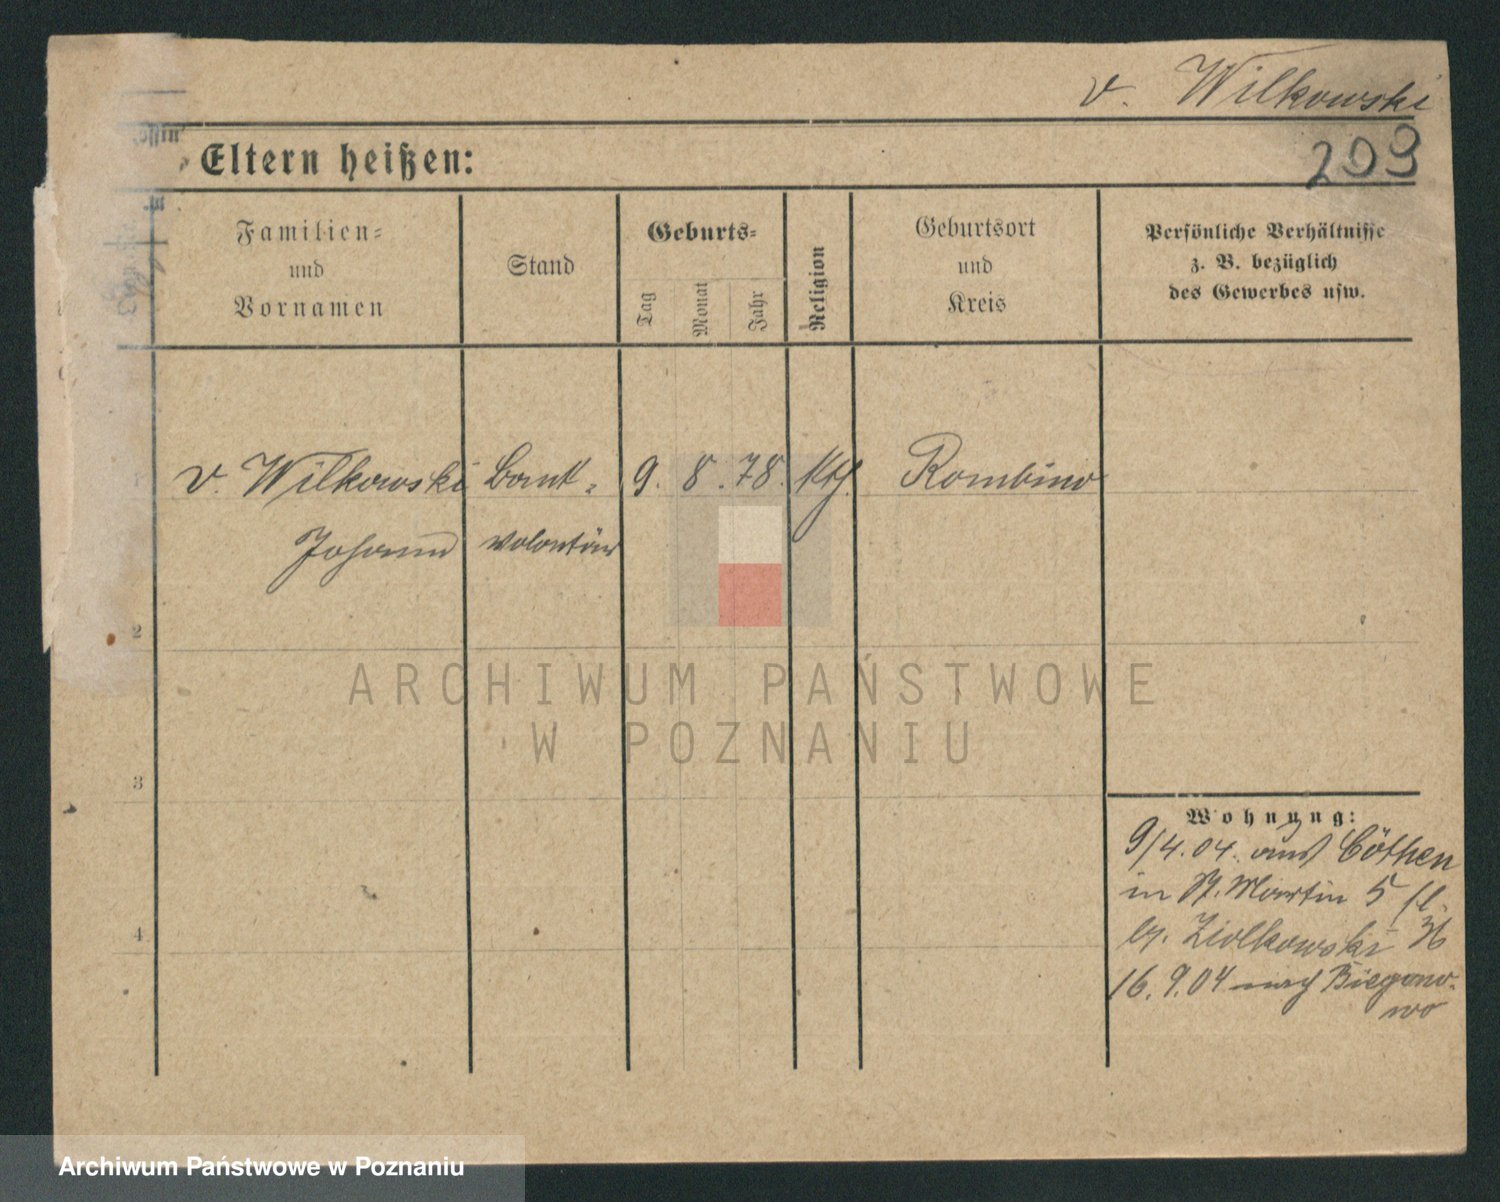 v. Wilkowski
Eltern heißen:
209
Familien-
und
Vornamen
Stand
Geburts-
Tag
Monat
Jahr
Religion
Geburtsort
und
Kreis
Persönliche Verhältnisse
z. B. bezüglich
des Gewerbes usw.
v. Wilkowski Bank- 9. 8. 78. kth. Rombino
Johann volontär
2
ARCHIWUM PAŃSTWOWE
W POZNANIU
3
Wohnung:
9/4.04. aus Cöthen
in St. Martin 5
4
Ziolkowski
16.9.04 nach Biegano-
wo
Archiwum Państwowe w Poznaniu